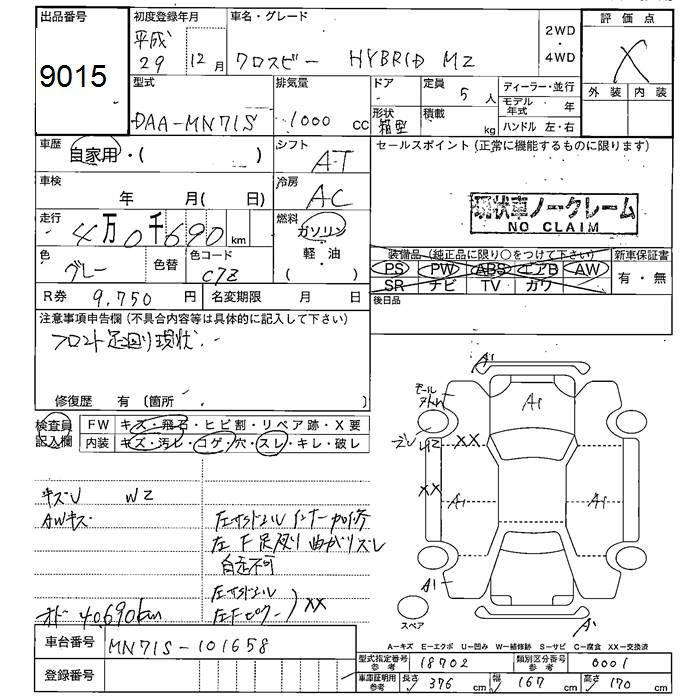 出品番号
9015
初度登録年月
平成
29 12月
車名・グレード
クロスビー HYBRID MZ
2WD
・
4WD
評価点
X
外装 内装
型式
DAA-MN71S
排気量
1000 cc
ドア
形状
箱型
定員
5 人
積載
kg
ディーラー・並行
モデル年式 年
ハンドル 左・右
車歴
自家用・( )
シフト
AT
セールスポイント (正常に機能するものに限ります)
車検
年 月( 日)
冷房
AC
現状車ノークレーム
NO CLAIM
走行
4万0千690km
燃料
ガソリン
軽・油
( )
色
グレー
色替
色コード
C7Z
装備品 (純正品に限り○をつけて下さい)
PS PW ABS エアB AW
SR ナビ TV カワ
新車保証書
有・無
R券 9,750 円
名変期限 月 日
後日品
注意事項申告欄 (不具合内容等は具体的に記入して下さい)
フロント足回り現状
修復歴 有 (箇所 )
検査員記入欄
FW キズ・飛石・ヒビ割・リペア跡・X要
内装 キズ・汚レ・コゲ・穴・スレ・キレ・破レ
キズU W2
AWキズ
左サイドシル インナー加修
左F足廻り曲がりズレ
自走不可
左サイドシル
左Fピラー
XX
オド 40,690km
A1
モール
A1
ズレ
XX
XX
A1
A1
A1
A1
スペア
A-キズ E-エクボ U-凹み W-補修跡 S-サビ C-腐食 XX-交換済
車台番号 MN71S-101658
登録番号
型式指定番号参考 18702
類別区分番号参考 0001
車庫証明用参考
長さ 376 cm
幅 167 cm
高さ 170 cm